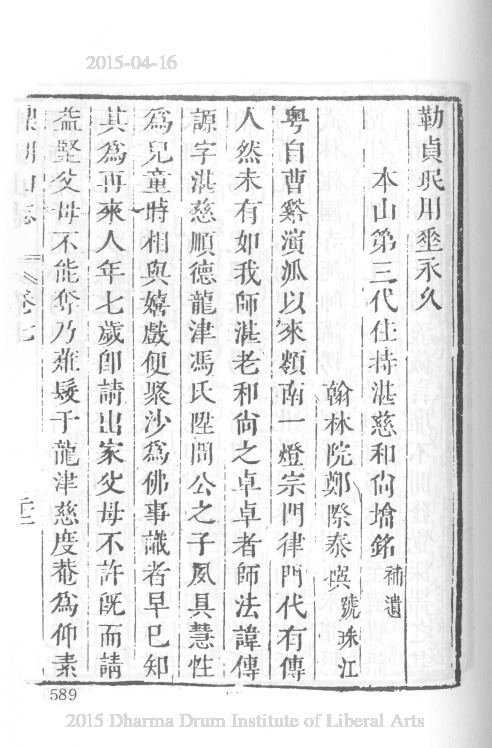 2015-04-16
勒貞珉用垂永久
本山第三代住持湛慈和尙墖銘 補遺
翰林院鄭際泰撰 號珠江
粤自曹谿演派以來嶺南一燈宗門律門代有傳
人然未有如我師湛老和尙之卓卓者師法諱傳
謜字湛慈順德龍津馮氏陞聞公之子夙具慧性
爲兒童時相與嬉戲便聚沙爲佛事識者早已知
其爲再來人年七歲卽請出家父母不許旣而請
益堅父母不能奪乃薙髮于龍津慈度菴爲仰素
山志 卷七
589
2015 Dharma Drum Institute of Liberal Arts